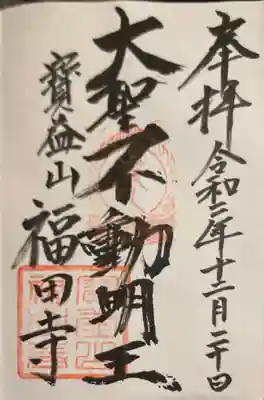 奉拝 令和二年十二月二十日
大聖不動明王
寳益山 福田寺